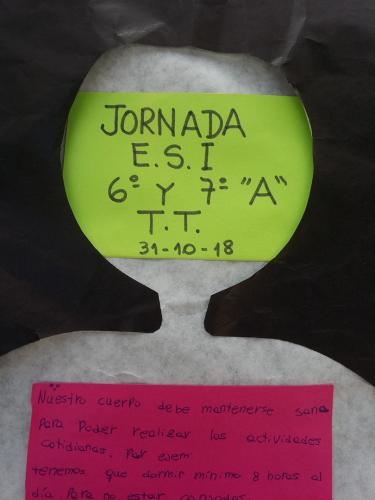 JORNADA
E.S.I
6º Y 7º "A"
T.T.
31-10-18
Nuestro cuerpo debe mantenerse sana
Para Poder realizar las actividades
cotidianas. Por ejem:
tenemos que dormir mínimo 8 horas al
día Para no estar cansados